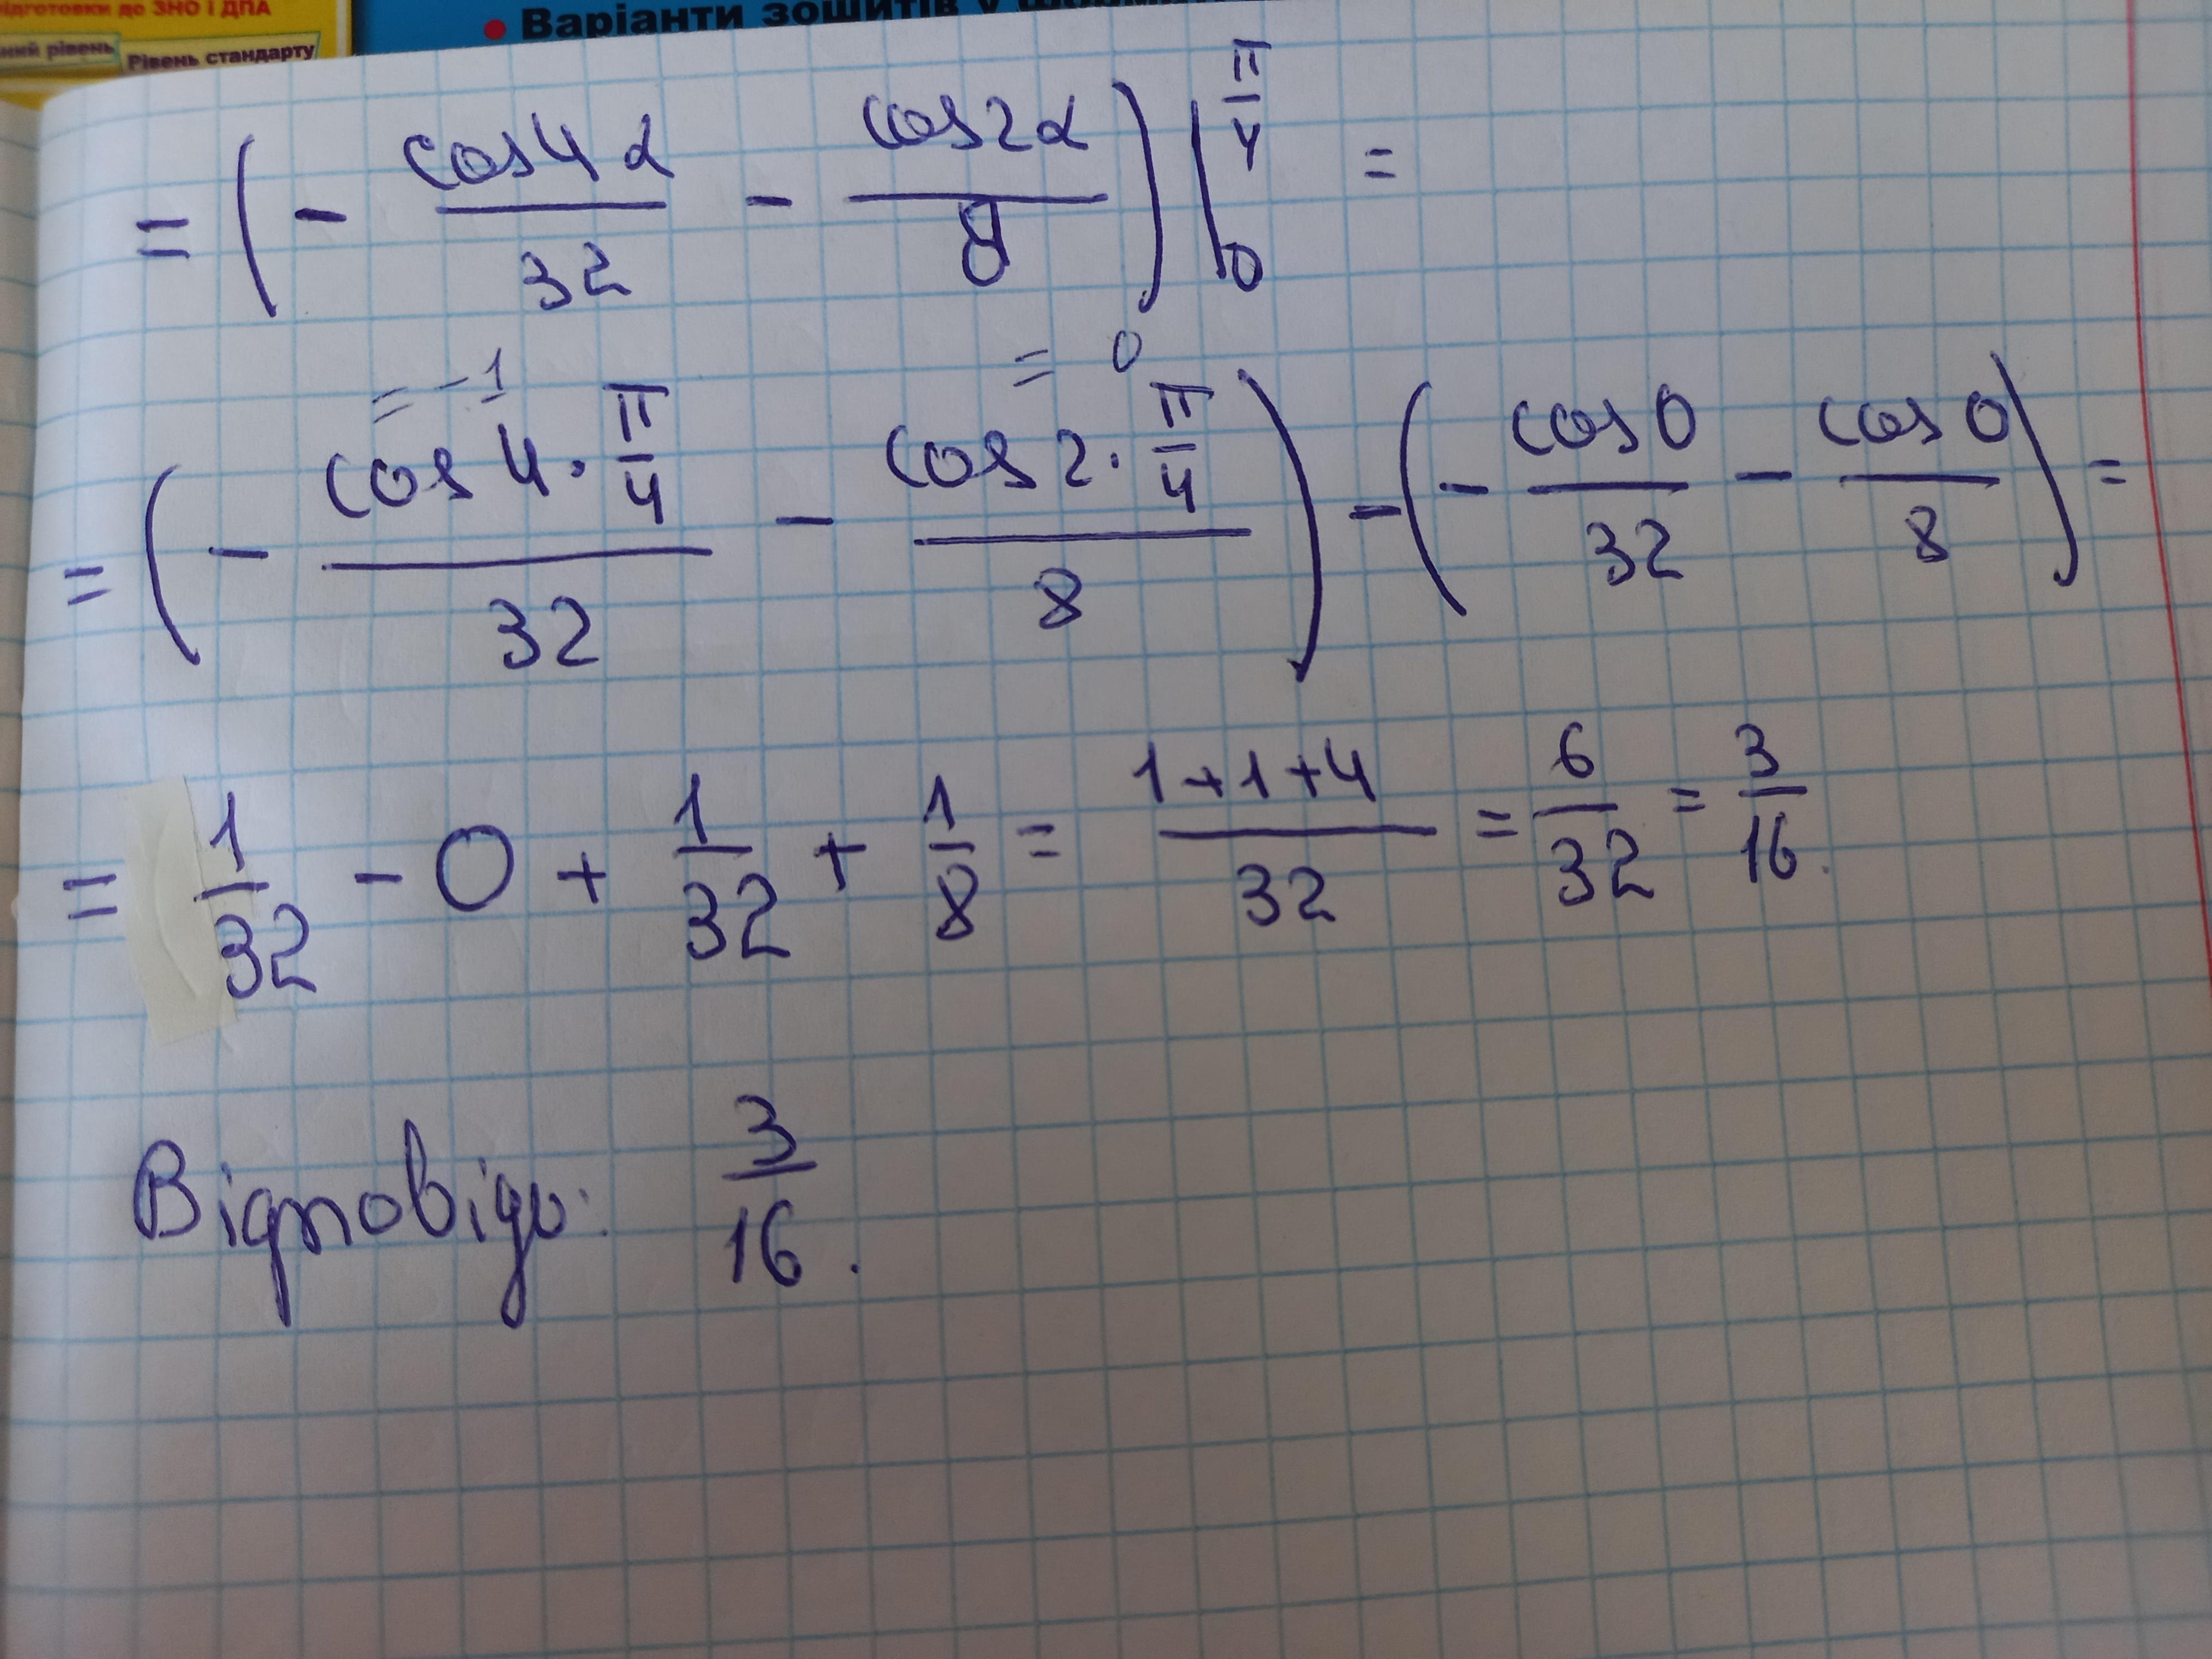 ідготовки до ЗНО і ДПА
ний рівень Рівень стандарту
• Варіанти зошитів у
= (- cos4α/32 - cos2α/8) |₀^(π/4) =
= -1 = 0
= (- cos 4·π/4 / 32 - cos 2·π/4 / 8) - (- cos 0/32 - cos 0/8) =
= 1/32 - 0 + 1/32 + 1/8 = (1+1+4)/32 = 6/32 = 3/16.
Відповідь: 3/16.